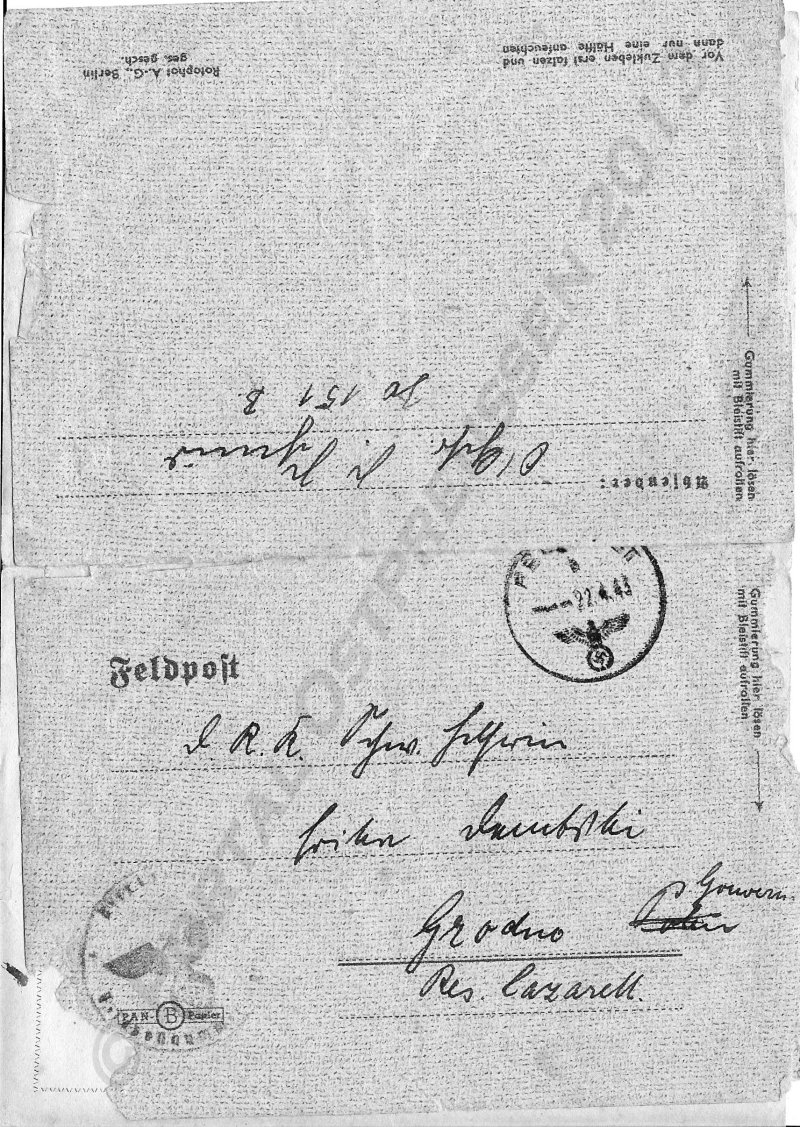 Vor dem Zukleben erst falzen und
dann nur eine Hälfte anfeuchten
Rotophot A.-G., Berlin
ges. gesch.
Gummierung hier lösen
mit Bleistift aufrollen
Absender:
151 B
22.4.43
Gummierung hier lösen
mit Bleistift aufrollen
Feldpost
D. R. K. Schw. Helferin
Dembski
Grodno Gouvern.
Res. Lazarett.
PAN B Papier
© PORTAL-OSTPREUSSEN 2013